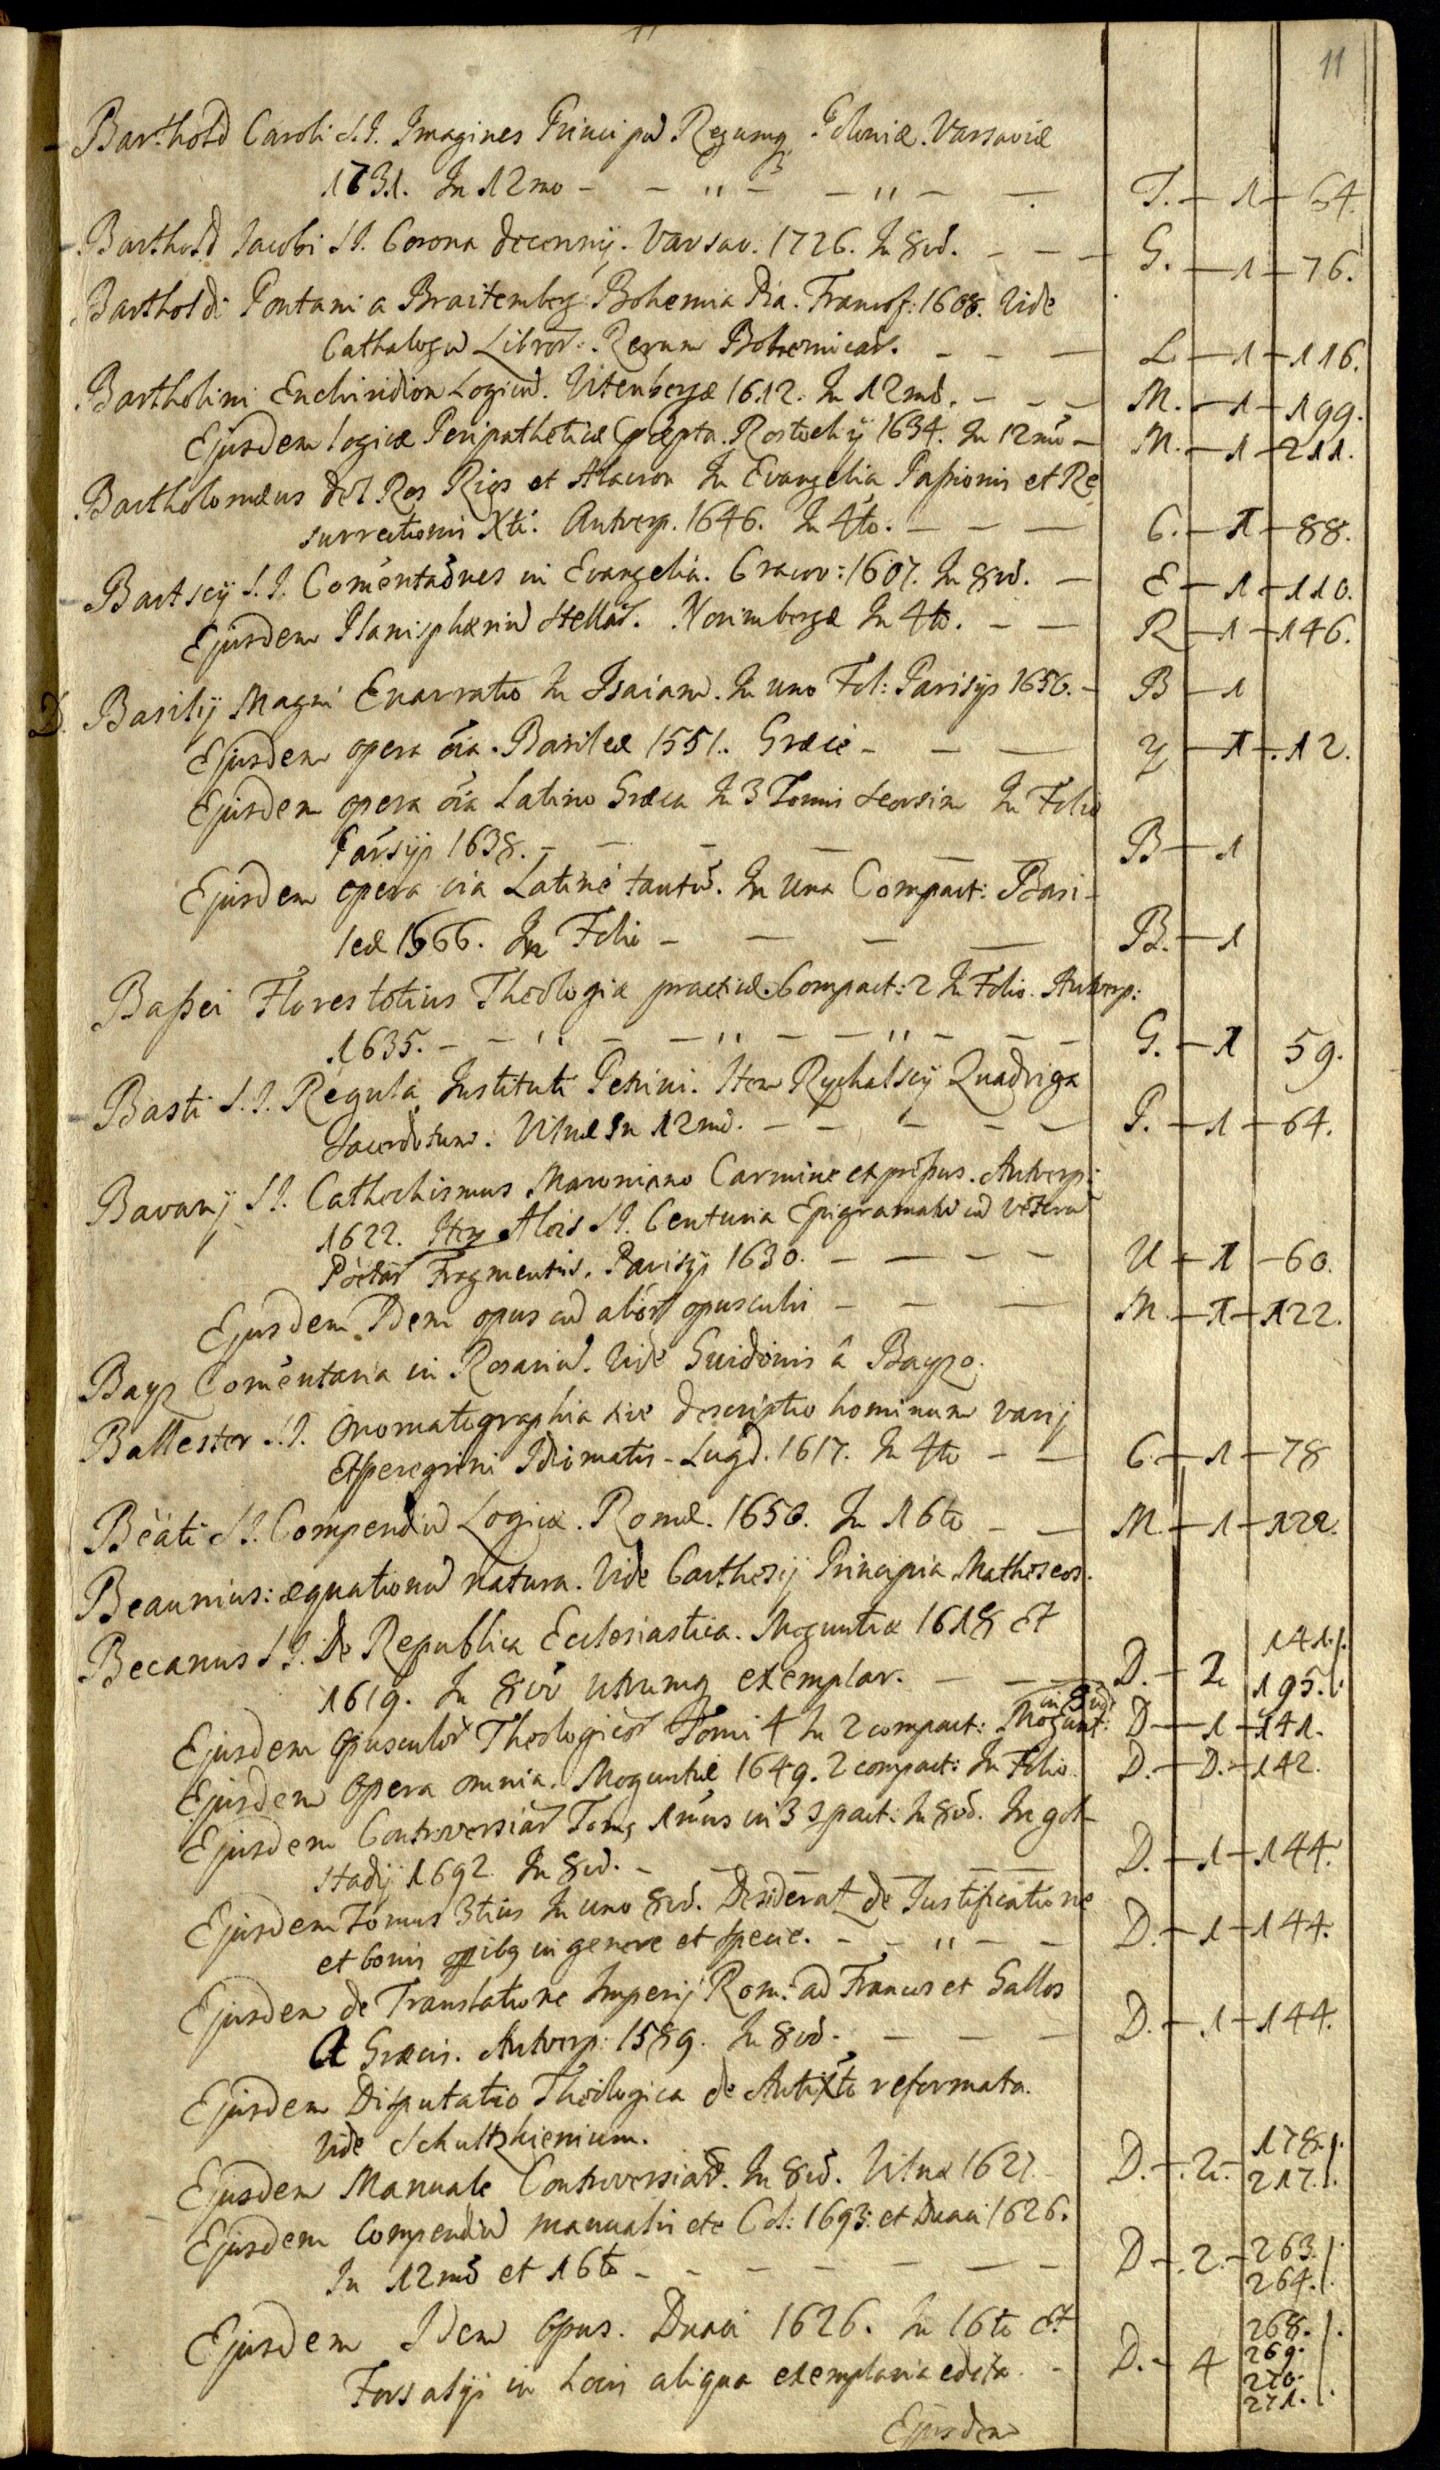 11
Barthold Caroli S.J. Imagines Principũ Regumq Poloniæ. Varsaviæ
1731. In 12mo - - „ - - „ - - T. - 1 - 64.
Barthold Jacobi SJ. Corona decennij. Varsav. 1726. In 8võ. - - - G. - 1 - 76.
Bartholdi Pontani a Braitemberg: Bohemia Pia. Francof: 1608. Vide
Cathalogũ Libror: Rerum Bohemicar̃. - - - L - 1 - 116.
Bartholini Enchiridion Logicũ. Vitenbergæ 1612. In 12mõ. - - - M. - 1 - 199.
Ejusdem logicæ Peripatheticæ Præcepta. Rostochij 1634. In 12mõ - M. - 1 - 211.
Bartholomæus del Ros Rios et Alarcon In Evangelia Passionis et Re
surrectionis Xti. Antverp. 1646. In 4to. - - - C. - 1 - 88.
Bartscij S.J. Comentaõnes in Evangelia. Cracov: 1607. In 8võ. - E - 1 - 110.
Ejusdem Planisphæriũ Stellar̃. Norimbergæ In 4to. - - R - 1 - 146.
D. Basilij Magni Enarratio In Isaiam. In uno Fol: Parisijs 1656. - B - 1
Ejusdem opera õia. Basileæ 1551. Græcè - - - Y - 1 - 12.
Ejusdem opera õia Latino Græca In 3 Tomis seorsim In Folio
Parisijs 1638. - - - - - - B - 1
Ejusdem opera õia Latinè tantũ. In una Compact: Basi-
leæ 1566. In Folio - - - - B. - 1
Bassei Flores totius Theologiæ practicæ. Compact: 2 In Folio. Antverp:
1635. - - „ - - „ - - „ - - - G. - 1 59.
Basti S.J. Regula Instituti Petrini. Item Rychalscij Quadriga
Sacerdotum. Vilnæ In 12mõ. - - - - - P. - 1 - 64.
Bavarij SJ. Cathechismus Maroniano Carmine expressus. Antverp:
1622. Item Alois SJ. Centuria Epigramatũ cũ veterũ
Poetar̃ Fragmentis. Parisijs 1630. - - - - U - 1 - 60.
Ejusdem Idem opus cũ alijs opusculis - - - M. - 1 - 122.
Bays Comentaria in Rosariũ. Vide Guidonis â Bayso.
Ballester SJ. Onomatographia sive descriptio hominum varij
et peregrini Idiomatis - Lugd. 1617. In 4to - - C. - 1 - 78
Beati SJ. Compendiũ Logicæ. Romæ. 1650. In 16to - - M. - 1 - 122.
Beaunius: æquationũ natura. Vide Carthesij Principia Matheseos.
Becanus SJ. De Republica Ecclesiastica. Moguntiæ 1618 Et
1619. In 8vo utrumq exemplar. - - - D. - 2 141. 195.
Ejusdem Opusculor̃ Theologicor̃ Tomi 4 In 2 compact: Mogunt: in 8vo D - 1 - 141.
Ejusdem Opera omnia. Moguntiæ 1649. 2 compact: In Folio D. - D. - 142.
Ejusdem Controversiar̃ Tomq 1mus in 3 Cpact: In 8võ. Ingol-
stadij 1692 In 8vo. - - - - - D. - 1 - 144.
Ejusdem Tomus 3tius In uno 8võ. Desiderat de Justificatione
et bonis opibq in genere et specie. - - „ - - D. - 1 - 144.
Ejusdem de Translatione Imperij Rom: ad Francos et Gallos
A Græcis. Antverp: 1589. In 8võ. - - - D. - 1 - 144.
Ejusdem Disputatio Theologica de Antixto reformata.
Vide Schultzkienium.
Ejusdem Manuale Controversiar̃. In 8võ. Vilnæ 1627. D. - 2. - 178. 217.
Ejusdem Compendiũ manualis etc Col: 1693: et Duaci 1626.
In 12mõ et 16to - - - - - - D - 2. - 263. 264.
Ejusdem Idem Opus. Duaci 1626. In 16to Et
Fors alijs in Locis aliqua exemplaria edita. - D. - 4 268. 269. 270. 271.
Ejusdem